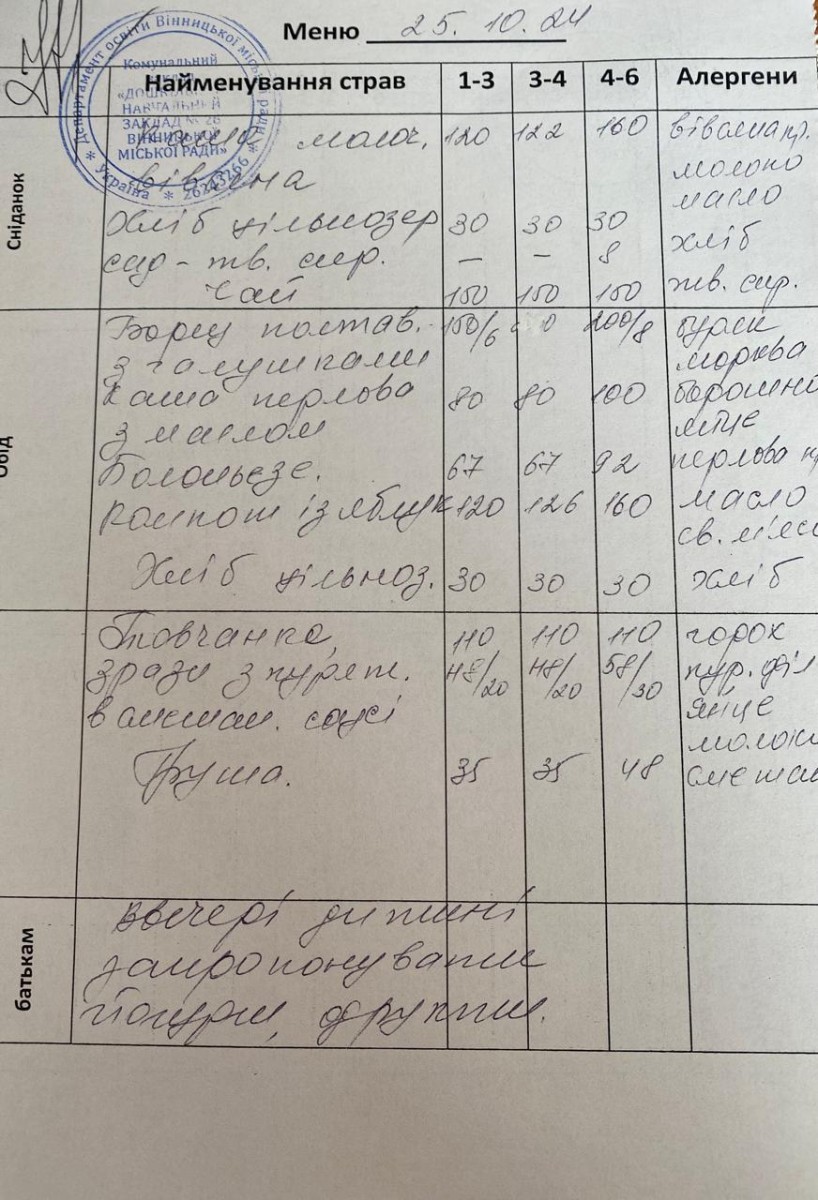 Меню 25.10.24
Департамент освіти Вінницької міської ради * Україна * 26243266 *
Комунальний
заклад
«ДОШКІЛЬНИЙ
НАВЧАЛЬНИЙ
ЗАКЛАД № 26
ВІННИЦЬКОЇ
МІСЬКОЇ РАДИ»
Найменування страв 1-3 3-4 4-6 Алергени
Сніданок
Каша молоч. 120 122 160 вівсяна кр.
вівсяна молоко
масло
Хліб цільнозер 30 30 30 хліб
сир - тв. сир. – – 8
Чай 150 150 150 тв. сир.
Обід
Борщ полтав. 150/6 200/8 буряк
з галушками морква
Каша перлова 80 80 100 борошно
з маслом яйце
Болоньєзе. 67 67 92 перлова кр
компот із яблук 120 126 160 масло
св. м'ясо
Хліб цільноз. 30 30 30 хліб
Товчанка, 110 110 110 горох
зрази з курят. 48/20 48/20 58/30 кур. філ
в сметан. соусі яйце
молоко
Груша. 35 35 48 сметан
батькам
ввечері дитині
запропонувати
йогурт, фрукти.